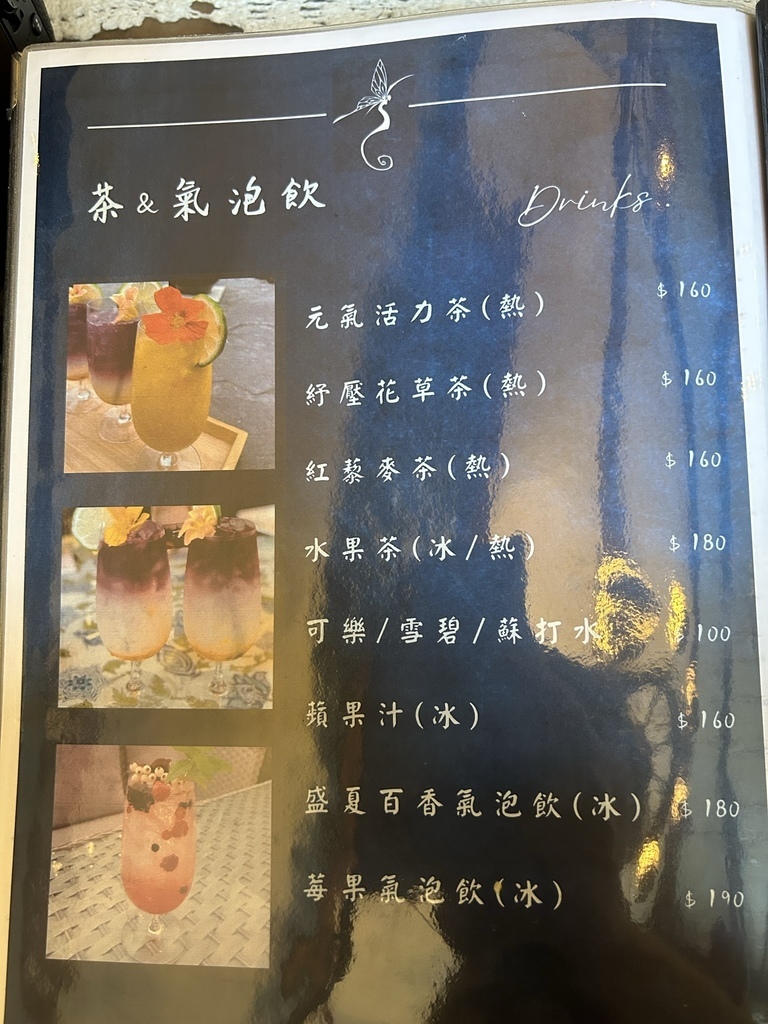 茶&氣泡飲
Drinks
元氣活力茶(熱) $160
紓壓花草茶(熱) $160
紅藜麥茶(熱) $160
水果茶(冰/熱) $180
可樂/雪碧/蘇打水 $100
蘋果汁(冰) $160
盛夏百香氣泡飲(冰) $180
莓果氣泡飲(冰) $190